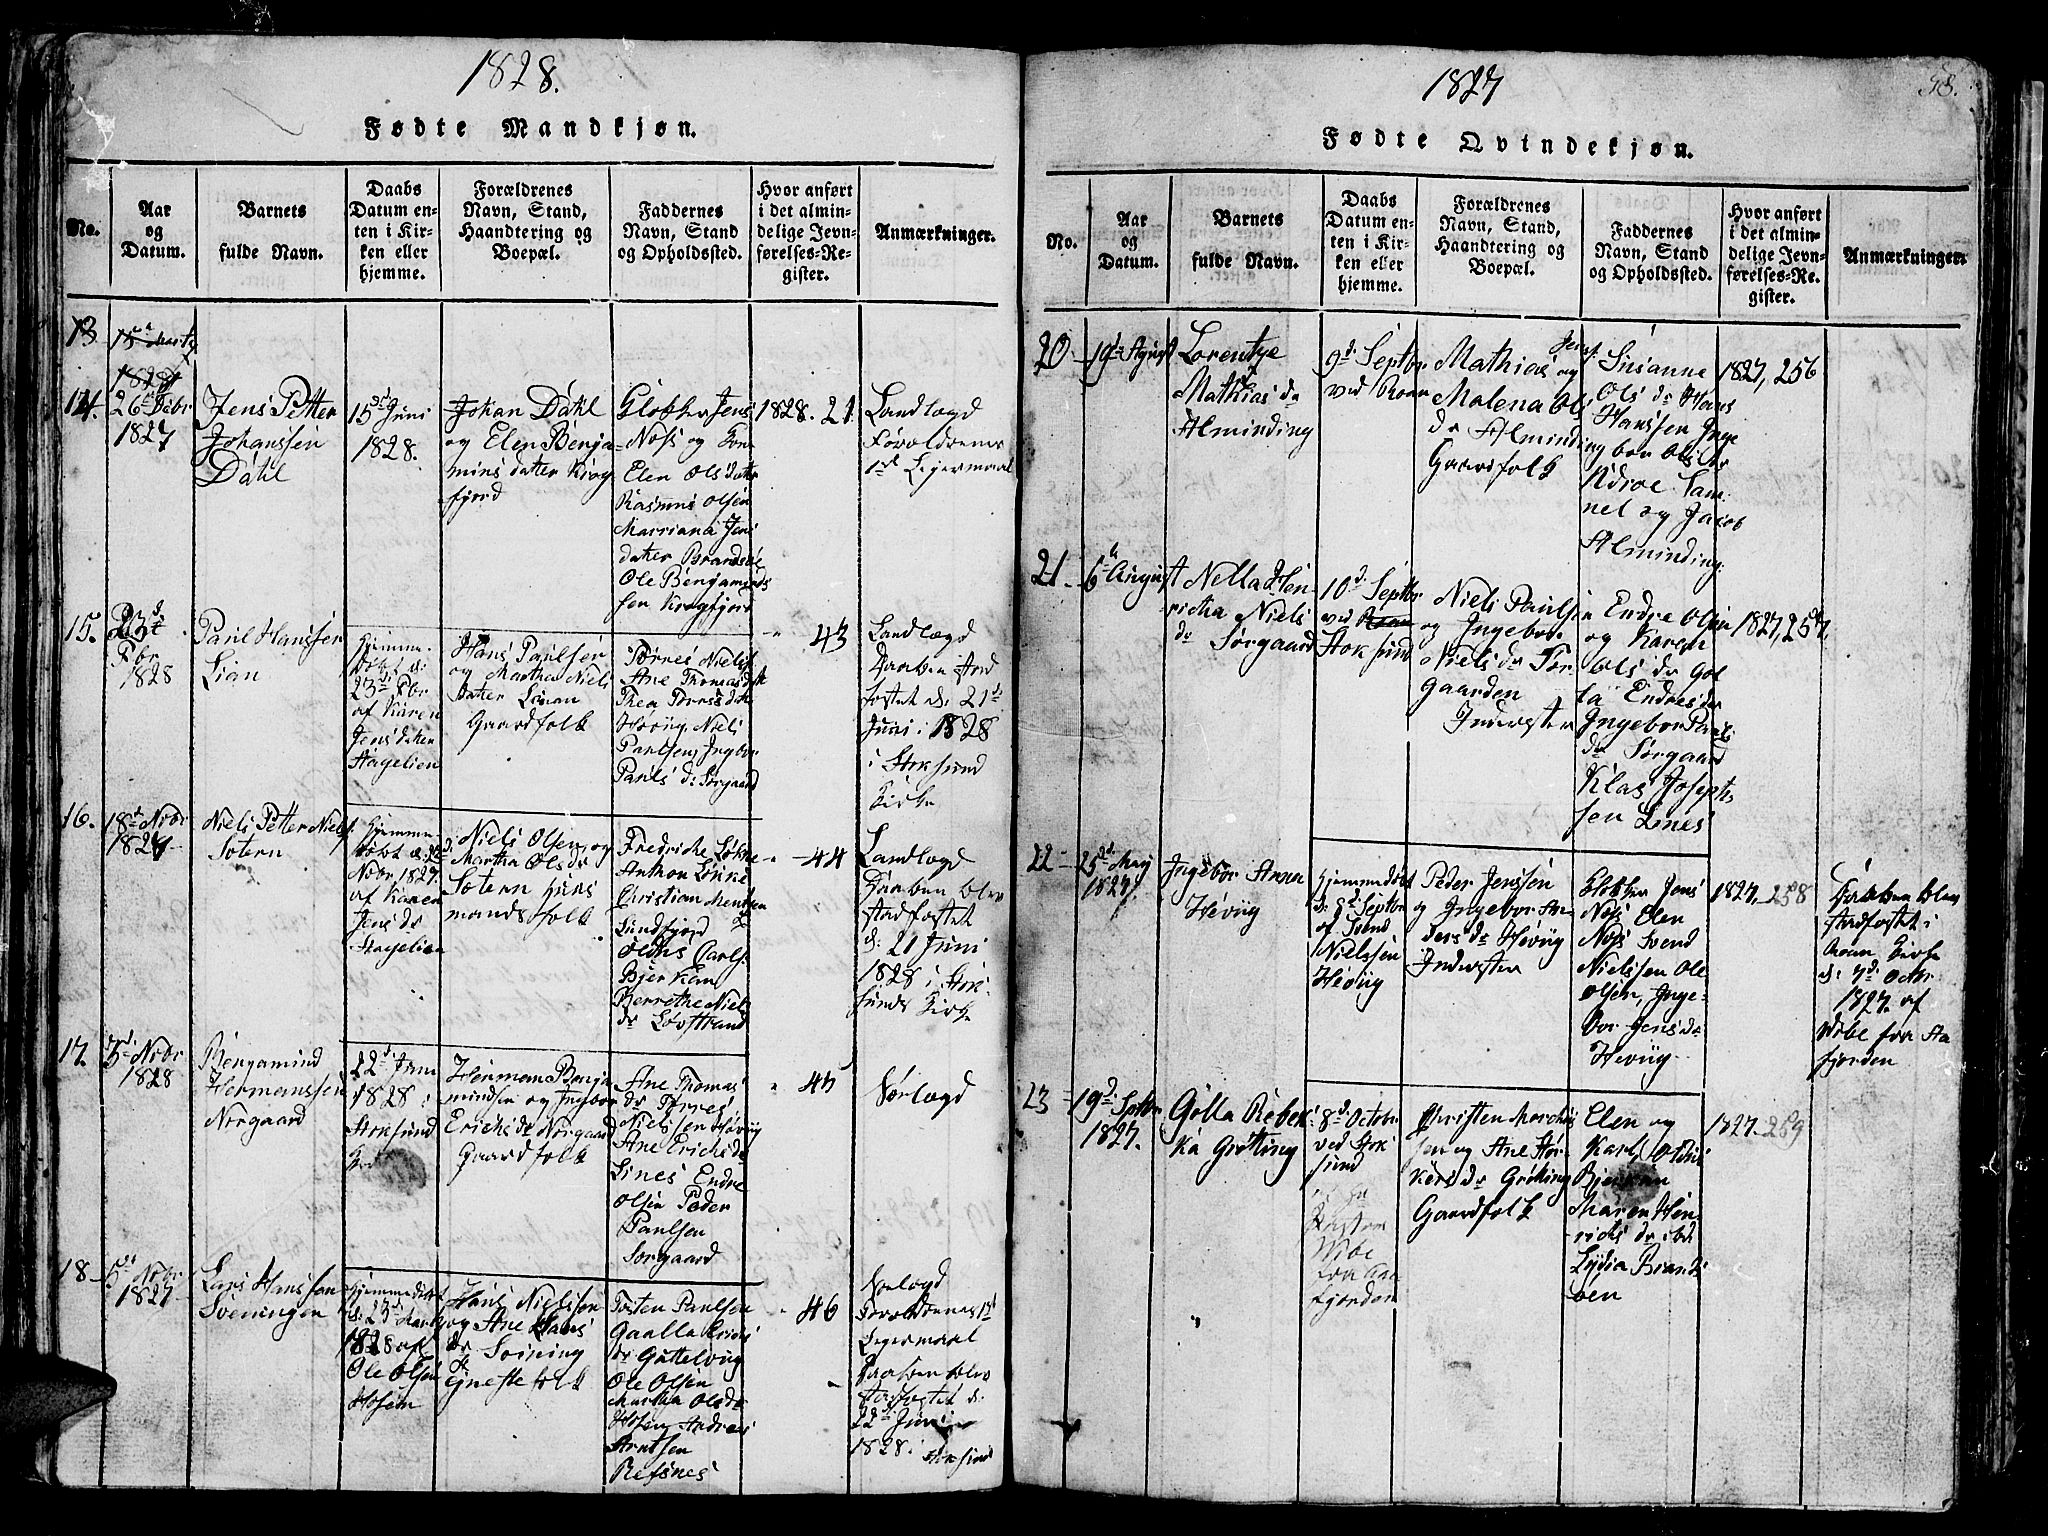 1828.
Fødte Mandkjøn.
No.
Aar
og
Datum.
Barnets
fulde Navn.
Daabs
Datum en-
ten i Kir-
ken eller
hjemme.
Forældrenes
Navn, Stand,
Haandtering og
Boepæl.
Faddernes
Navn, Stand
og Opholdssted.
Hvor anført
i det almin-
delige Jevn-
førelses-Re-
gister.
Anmærkninger.
13
14.
26 Debr
1827
Jens Petter
Johanssen
Dahl
15de Juni
1828.
Johan Dahl
og Elen Benja
mins datter Krog
fjord
Klokker Jens
Noss og Kon
Elen Olsdatter
Rasmus Olsen
Marriana Jens
datter
Ole Benjamins
sen Krogfjord
1828. 21.
Landlægd
Forældrenes
1de Lejermaal
15.
23de
Fbr
1828
Paul Hanssen
Lian
Hjemme
døbt d:
23de Fbr
af Karen
Jensdatter
Hagelien
Hans Paulsen
og Martha Niels
datter
Gaardfolk
Tørres Niels
Ane Thomasdatt
Thea Tørresdatt
Hevüg Niels
Paulsen, Ingebor
Pauls d: Sørgaard
" 43
Landlægd
Daaben stad
fæstet d: 21de
Juni 1828
i Stoksund
Kirke
16.
18de Novbr
1827
Niels Petter Niels
Sætern
Hjemme
døbt d:
Nobr 1827.
af Karen
Jens dr
Hagelien
Niels Olsen og
Martha Ols dr
Sætern Huus
mandsfolk
Fredriche Løkke
Anthon Løkke
Christian Mentsen
Sundfjord
Carls
Bjørkan
Berrethe Niels
dr Løvstrand
" 44
Landlægd
Daaben blev
stadfæstet
d: 21 Juni
1828 i Stok
sunds Kirke
17.
3de Novbr
1828
Bengamind
Hermanssen
Norgaard
22de Juni
1828 i
Stoksund
Herman Benja
mindsen og Ingebor
Erichs dr Norgaard
Gaardfolk
Ane Thomas
dr Tørres
Nielssen Høvüg
Ane Erichs dr
Lines Endre
Olsen Peder
Paulsen
Sorgaard
" 45
Sørlægd
18
5de Nobr
1827
Lars Hanssen
Sveningen
Hjemmedøbt
d: 23de Marts
1828 af
Ole Olsen
Hosen
Hans Nielssen
og Ane Hans
dr Svining
Tjenestefolk
Torsten Paulsen
Gaalla Erichs
dr Güttelvüg
Ole Olsen
Martha Olsdr
Hosen, Andreas
Arntsen
Refsnes
" 46
Sølægd
Forældrenes 1ste
Legermaal
Daaben blev
stadfæstet d:
22de Juni
1828. i
Stoksund
1827
58.
Fødte Qvindekjøn.
No.
Aar
og
Datum.
Barnets
fulde Navn.
Daabs
Datum en-
ten i Kir-
ken eller
hjemme.
Forældrenes
Navn, Stand,
Haandtering og
Boepæl.
Faddernes
Navn, Stand
og Opholdssted.
Hvor anført
i det almin-
delige Jevn-
førelses-Re-
gister.
Anmærkninger.
20
19de August
Lorentze
Mathias dr
Alminding
9de Septbr
ved Roan
Mathias Jens.
og
Malena Ols
dr Alminding
Gaardfolk
Susanne
Ols dr Hans
Hanssen Inge
bor Ols dr
Kiroe Sam
uel og Jacob
Alminding
1827, 256
21.
6te August
Nella Hen
richa Niels
dr Sørgaard
10de Septbr
ved Roan
Stoksund
Niels Paulsen
og Ingebor
Nielsdr Sør
gaarden
Inderster
Endre Olsen
og Karen
Ols dr Gol
la Endresdr
Ingebor Pauls
dr Sørgaard
Klas Joseph
sen Lines
1827, 257.
22
25de Maj
1827
Ingebor Anna
Hevüg
Hjemmedøbt
d: 8de Septbr
af Svend
Nielssen
Hevüg
Peder Jenssen
og Ingebor An
ders dr Hevüg
Inderster
Klokker Jens
Noss Elen
Noss Svend
Nielssen Ole
Olsen, Inge
bor Jensdr
Hevüg
1827, 258
Daaben blev
stadfæstet i
Roan Kirke
d: 7de Octbr
1827. af
Wibe fra Aa
fjorden
23
19de Septbr
1827.
Golla Rebek
ka Grøtting
8de Octobr
ved Stok
sund
Pastor
Wibe
fra Aa
fjorden
Christen Morthi
sen og Ane Hør
kersdr Grøtting
Gaardfolk
Elen og
Karl Othus
Bjerkan
Maren Hen
richs dr ibd
Lydia Brands
øen
1827. 259